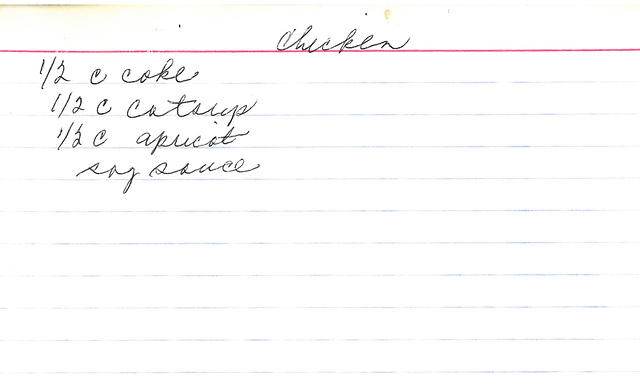 Chicken
1/2 c coke
1/2 c catsup
1/2 c apricot
soy sauce